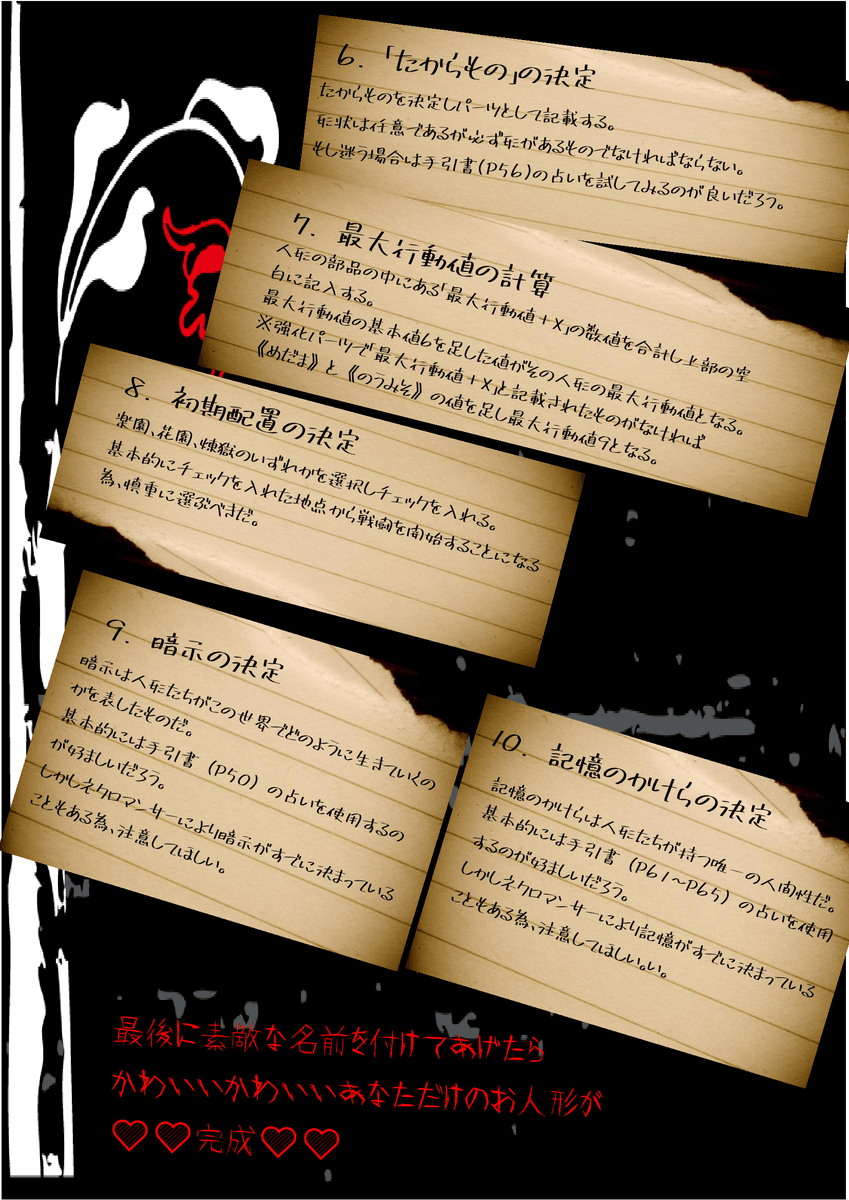 6. 「たからもの」の決定
たからものを決定しパーツとして記載する。
形状は任意であるが必ず形があるものでなければならない。
もし迷う場合は手引書(P56)の占いを試してみるのが良いだろう。
7. 最大行動値の計算
人形の部品の中にある「最大行動値+X」の数値を合計し上部の空
白に記入する。
最大行動値の基本値6を足した値がその人形の最大行動値となる。
※強化パーツで「最大行動値+X」と記載されたものがなければ
《めだま》と《のうみそ》の値を足し最大行動値9となる。
8. 初期配置の決定
楽園、花園、煉獄のいずれかを選択しチェックを入れる。
基本的にチェックを入れた地点から戦闘を開始することになる
為、慎重に選ぶべきだ。
9. 暗示の決定
暗示は人形たちがこの世界でどのように生きていくの
かを表したものだ。
基本的には手引書(P50)の占いを使用するの
が好ましいだろう。
しかしネクロマンサーにより暗示がすでに決まっている
こともある為、注意してほしい。
10. 記憶のかけらの決定
記憶のかけらは人形たちが持つ唯一の人間性だ。
基本的には手引書(P61~P65)の占いを使用
するのが好ましいだろう。
しかしネクロマンサーにより記憶がすでに決まっている
こともある為、注意してほしい。い。
最後に素敵な名前を付けてあげたら
かわいいかわいいあなただけのお人形が
♡♡完成♡♡